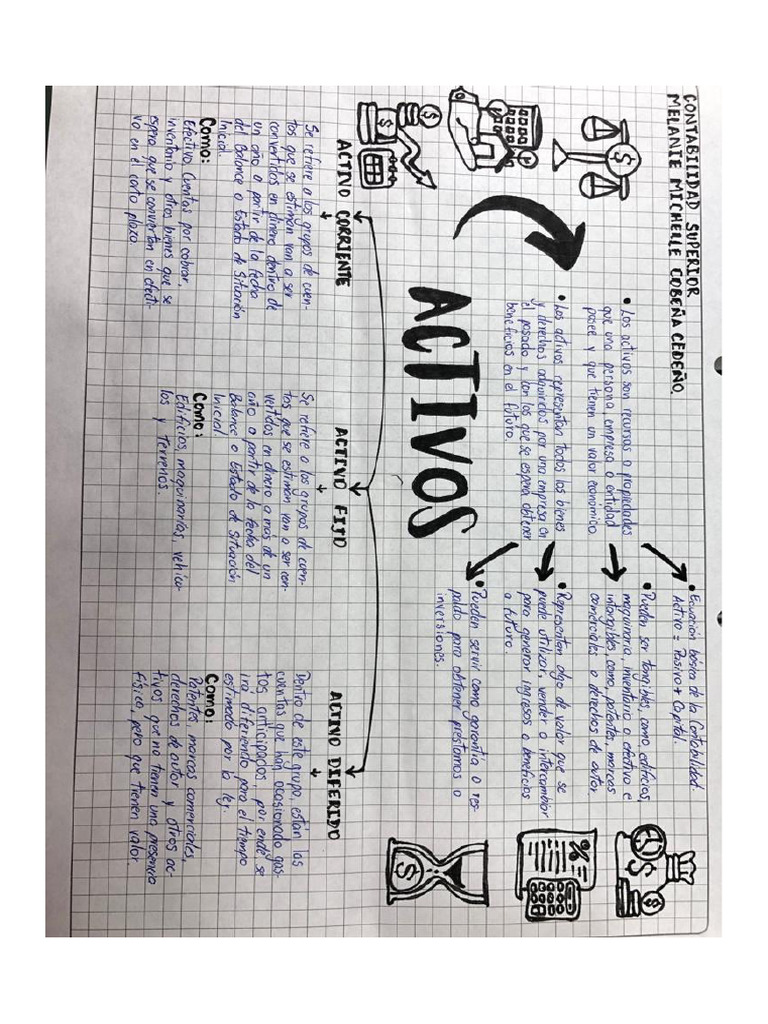 CONTABILIDAD SUPERIOR
MELANIE MICHELLE COBEÑA CEDEÑO.
• Los activos son recursos o propiedades
que una persona empresa o entidad
posee y que tienen un valor económico.
• Los activos representan todos los bienes
y derechos adquiridos por una empresa en
el pasado y con los que se espera obtener
beneficios en el futuro.
• Ecuación básica de la Contabilidad.
Activo = Pasivo + Capital.
• Pueden ser tangibles, como edificios,
maquinaria, inventario o efectivo e
intangibles, como, patentes, marcas
comerciales o derechos de autor.
• Representan algo de valor que se
puede utilizar, vender o intercambiar
para generar ingresos o beneficios
a futuro.
• Pueden servir como garantía o res-
paldo para obtener préstamos o
inversiones.
ACTIVOS
ACTIVO CORRIENTE
Se refiere a los grupos de cuen-
tas que se estimán van a ser
convertidos en dinero dentro de
un año a partir de la fecha
del Balance o Estado de Situación
Inicial.
Como:
Efectivo, Cuentas por cobrar,
inventario y otros bienes que se
espera que se conviertan en efecti-
vo en el corto plazo.
ACTIVO FIJO
Se refiere a los grupos de cuen-
tas que se estimán van a ser con-
vertidos en dinero a más de un
año a partir de la fecha del
Balance o Estado de Situación
Inicial.
Como:
Edificios, maquinarias, vehícu-
los y Terrenos.
ACTIVO DIFERIDO
Dentro de este grupo, están las
cuentas que han ocasionado gas-
tos anticipados, por ende se
irá difiriendo para el tiempo
estimado por la ley.
Como:
Patentes, marcas comerciales,
derechos de autor y otros ac-
tivos que no tienen una presencia
física, pero que tienen valor.